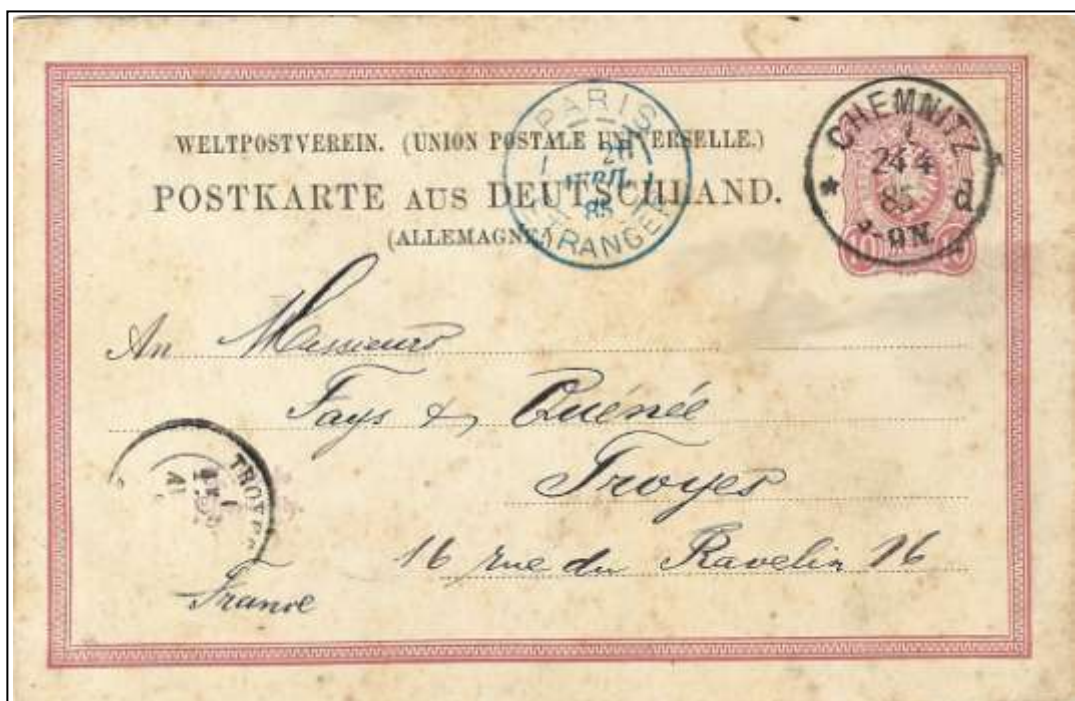 WELTPOSTVEREIN. (UNION POSTALE UNIVERSELLE.)
POSTKARTE AUS DEUTSCHLAND.
(ALLEMAGNE.)
PARIS
AVRIL
85
ETRANGER
CHEMNITZ
24 4
85
d
8-9N.
10 10
An Messieurs
Fays & Quénée
Troyes
16 rue du Ravelin 16
France
TROYES